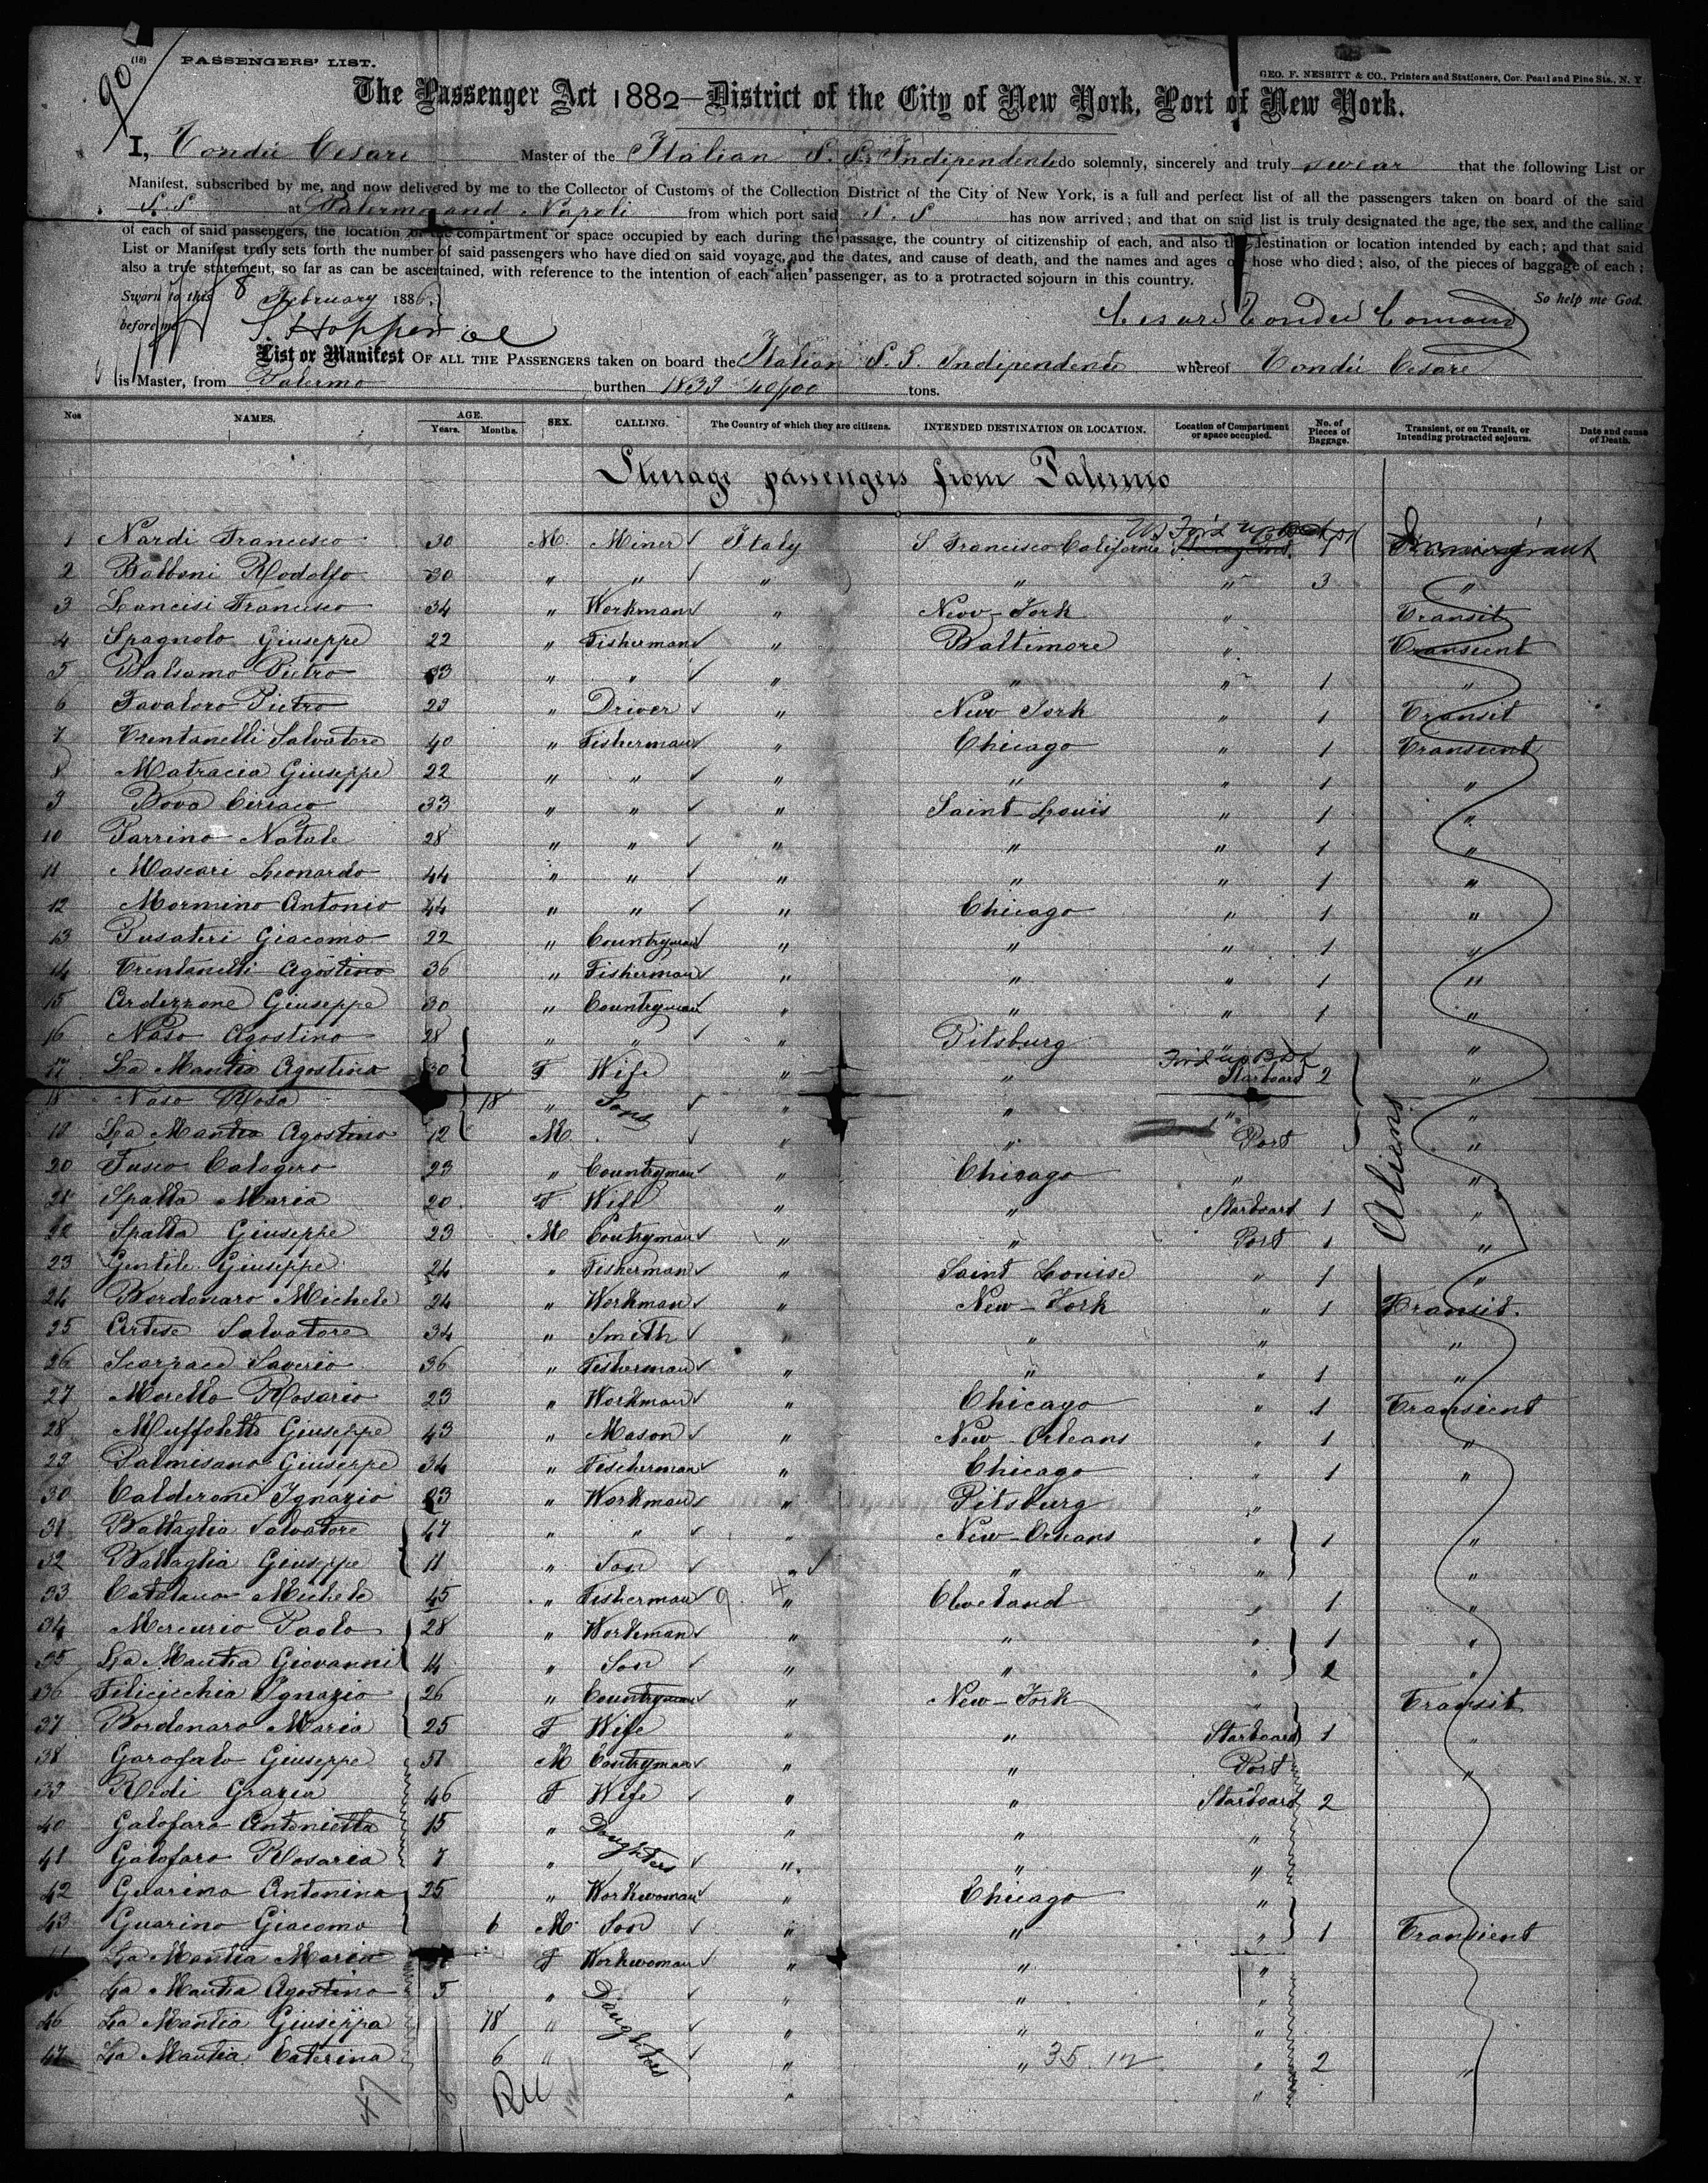 90
(18) PASSENGERS' LIST.
GEO. F. NESBITT & CO., Printers and Stationers, Cor. Pearl and Pine Sts., N. Y.
The Passenger Act 1882—District of the City of New York, Port of New York.
I, Condú Cesare Master of the Italian S. S. Indipendente do solemnly, sincerely and truly swear that the following List or
Manifest, subscribed by me, and now delivered by me to the Collector of Customs of the Collection District of the City of New York, is a full and perfect list of all the passengers taken on board of the said
S. S at Palermo and Napoli from which port said S. S has now arrived; and that on said list is truly designated the age, the sex, and the calling
of each of said passengers, the location of the compartment or space occupied by each during the passage, the country of citizenship of each, and also the destination or location intended by each; and that said
List or Manifest truly sets forth the number of said passengers who have died on said voyage, and the dates, and cause of death, and the names and ages of those who died; also, of the pieces of baggage of each;
also a true statement, so far as can be ascertained, with reference to the intention of each alien passenger, as to a protracted sojourn in this country.
So help me God.
Sworn to this 8 February 1886.
before me
Cesare Condú Comand
List or Manifest OF ALL THE PASSENGERS taken on board the Italian S. S. Indipendente whereof Condú Cesare
is Master, from Palermo burthen 1832 40/100 tons.
Nos NAMES. AGE. Years. Months. SEX. CALLING. The Country of which they are citizens. INTENDED DESTINATION OR LOCATION. Location of Compartment or space occupied. No. of Pieces of Baggage. Transient, or on Transit, or Intending protracted sojourn. Date and cause of Death.
Steerage passengers from Palermo
1 Nardi Francesco 30 M. Miner Italy S Francisco California 1
2 Babboni Rodolfo 30 " " " " " 3 "
3 Lancisi Francesco 34 " Workman " New-York " Transit
4 Spagnolo Giuseppe 22 " Fisherman " Baltimore " Transient
5 Balsamo Pietro 33 " " " " " 1 "
6 Favaloro Pietro 29 " Driver " New York " 1 Transit
7 Trentanelli Salvatore 40 " Fisherman " Chicago " 1 Transient
8 Matracia Giuseppe 22 " " " " " 1 "
9 Bova Cirraco 33 " " " Saint-Louis " 1 "
10 Parrino Natale 28 " " " " " 1 "
11 Mascari Leonardo 44 " " " " " 1 "
12 Mormino Antonio 44 " " " Chicago " 1 "
13 Pusateri Giacomo 22 " Countryman " " " 1 "
14 Trentanelli Agostino 36 " Fisherman " " " 1 "
15 Ardezzone Giuseppe 30 " Countryman " " " 1 "
16 Naso Agostino 28 " " " Pitsburg "
17 La Mantia Agostina 30 F Wife " " Starboard 2 "
18 Naso Rosa 18 " Sons " " " "
19 La Mantia Agostino 12 M. " " Port "
20 Fusco Calogero 23 " Countryman " Chicago " "
21 Spatta Maria 20 F Wife " " Starboard 1 "
22 Spatta Giuseppe 23 M Coutryman " " Port 1 "
Aliens
23 Gentile Giuseppe 24 " Fisherman " Saint Louise " 1 "
24 Bordonaro Michele 24 " Workman " New-York " 1 Transit.
25 Artese Salvatore 34 " Smith " " " "
26 Scozzace Saverio 36 " Fisherman " " " 1 "
27 Morello Rosario 23 " Workman " Chicago " 1 Transient
28 Muffoletti Giuseppe 43 " Mason " New-Orleans " 1 "
29 Palmisano Giuseppe 34 " Fischerman " Chicago " 1 "
30 Calderone Ignazio 23 " Workman " Pitsburg "
31 Battaglia Salvatore 47 " " " New-Orleans " 1 "
32 Battaglia Giuseppe 11 " Son " " " "
33 Catalano Michele 45 " Fisherman " Cleveland " 1 "
34 Mercurio Paolo 28 " Workman " " " 1 "
35 La Mantia Giovanni 14 " Son " " " 2 "
36 Filicicchia Ignazio 26 " Countryman " New-York " Transit
37 Bordonaro Maria 25 F Wife " " Starboard 1 "
38 Garofalo Giuseppe 51 M Contryman " " Port "
39 Redi Grazia 46 F Wife " " Starboard 2
40 Galofaro Antonietta 15 " Daughters " " "
41 Galofaro Rosaria 7 " " " "
42 Guarino Antonina 25 " Workwoman " Chicago "
43 Guarino Giacomo 6 M. Son " " " 1 Transient
44 La Mantia Maria F Workwoman " " "
45 La Mantia Agostino 5 " Daughters " " "
46 La Mantia Giuseppa 18 " " " "
47 La Mantia Caterina 6 " " " 35.12 " 2 "
47